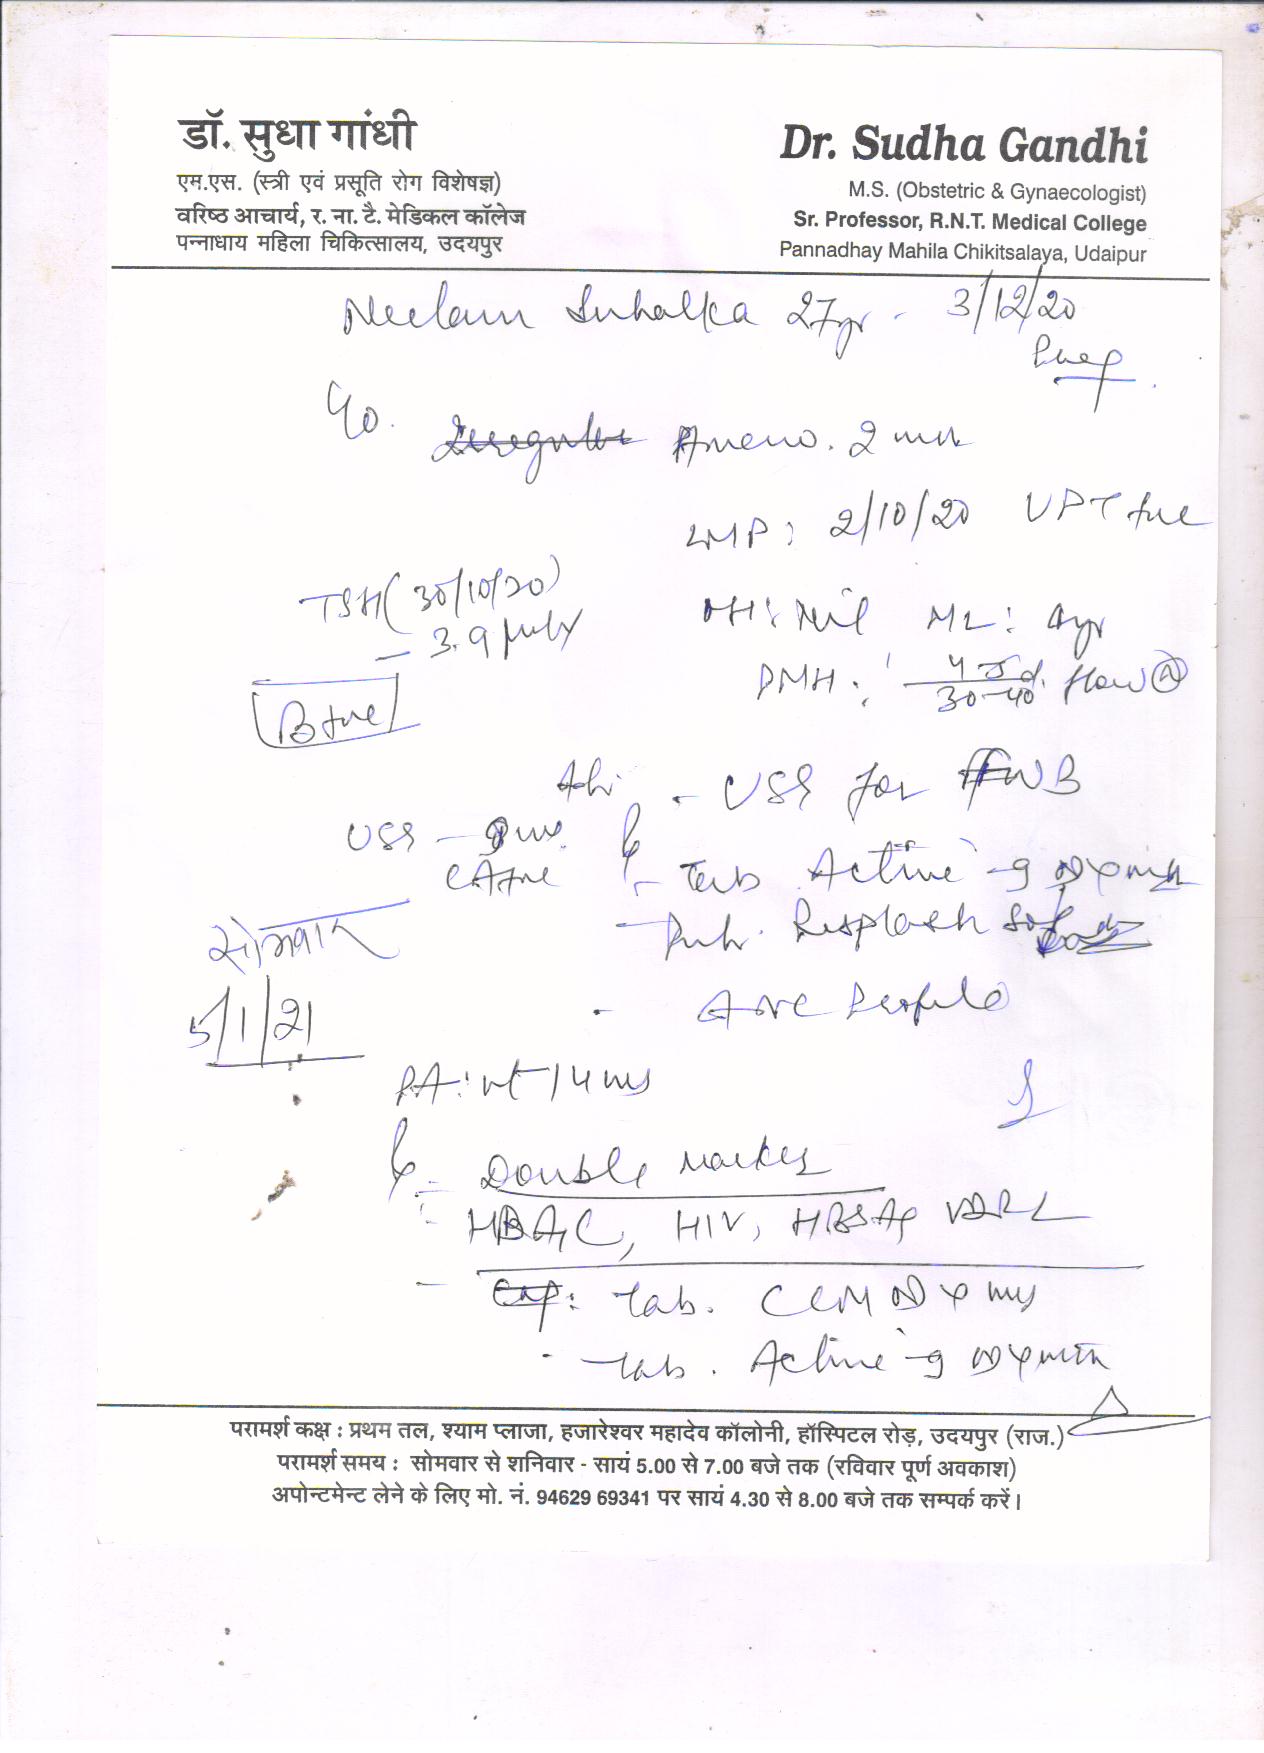 डॉ. सुधा गांधी
एम.एस. (स्त्री एवं प्रसूति रोग विशेषज्ञ)
वरिष्ठ आचार्य, र. ना. टै. मेडिकल कॉलेज
पन्नाधाय महिला चिकित्सालय, उदयपुर
Dr. Sudha Gandhi
M.S. (Obstetric & Gynaecologist)
Sr. Professor, R.N.T. Medical College
Pannadhay Mahila Chikitsalaya, Udaipur
Neelam Suhalka 27yr - 3/12/20
C/o. Ameno. 2 mth
LMP: 2/10/20 UPT +ve
TSH (30/10/20)
- 3.9
OH: Nil ML: 4yr
PMH: 4-5 d. / 30-40 flow (N)
B +ve
Adv - USG for FWB
USG
CA +ve
- Tab Active-9 OD x mth
सोमवार
- ANC Profile
5/1/21
PA: ut 14 wks
- Double marker
HBA1C, HIV, HBSAg VDRL
- Tab. CCM OD x
- Tab. Active-9 OD x mth
परामर्श कक्ष : प्रथम तल, श्याम प्लाजा, हजारेश्वर महादेव कॉलोनी, हॉस्पिटल रोड़, उदयपुर (राज.)
परामर्श समय : सोमवार से शनिवार - सायं 5.00 से 7.00 बजे तक (रविवार पूर्ण अवकाश)
अपोन्टमेन्ट लेने के लिए मो. नं. 94629 69341 पर सायं 4.30 से 8.00 बजे तक सम्पर्क करें।